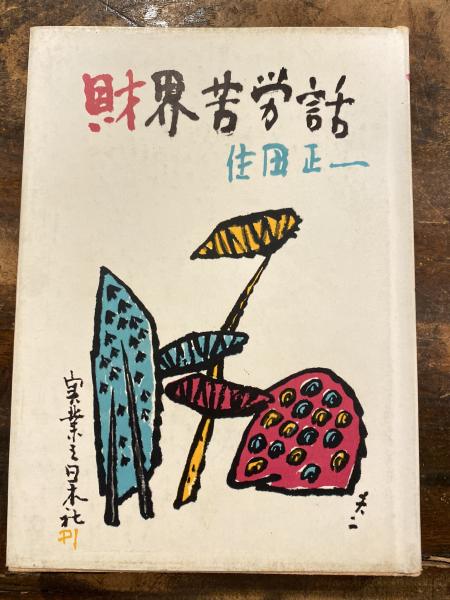 財界苦労話
住田正一
実業之日本社
刊
夫二